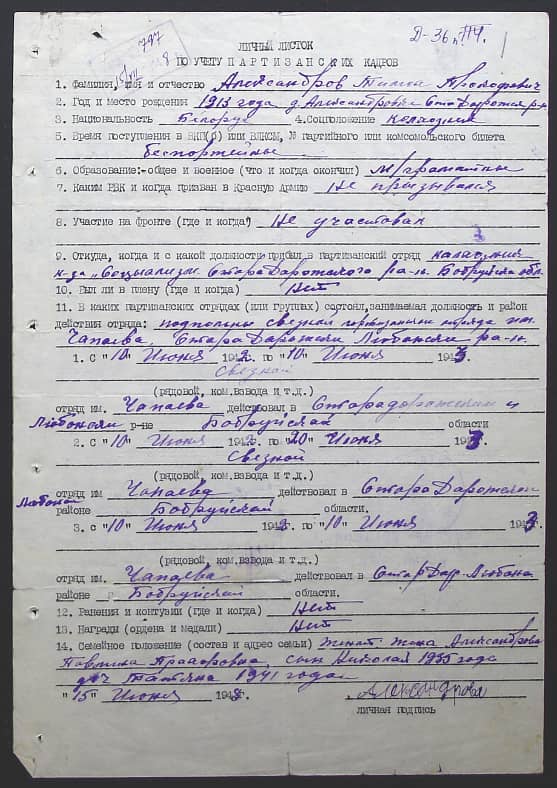 797
Д-36 п. ТТ1.
ЛИЧНЫЙ ЛИСТОК
ПО УЧЕТУ ПАРТИЗАНСКИХ КАДРОВ
1. Фамилия, имя и отчество Александров Прокофович
2. Год и место рождения 1913 года д. Александровичи
3. Национальность Белорус 4. Соцположение колхозник
5. Время поступления в ВКП(б) или ВЛКСМ, № партийного или комсомольского билета
беспортейны
6. Образование:-общее и военное (что и когда окончил) м/граматны
7. Каким РВК и когда призван в Красную Армию Не призывался
8. Участие на фронте (где и когда) Не участвовал
9. Откуда, когда и с какой должности прибыл в партизанский отряд колхозник
к-за "Социализм" Стара Дарожского ра-на Бобруйской обл.
10. Был ли в плену (где и когда) Нет
11. В каких партизанских отрядах (или группах) состоял, занимаемая должность и район
действия отряда: подпольны свезной партизанского отряда им.
Чапаева, Стара Дарожски Любански ра-н.
1. С "10" Июня 1942. по "10" Июня 1943.
Свезной
(рядовой, ком. взвода и т.д.)
отряд им. Чапаева действовал в Старадорожском и
Любонски р-не Бобруйскай области
2. С "10" Июня 1942. по "20" Июня 1943
Свезной
(рядовой, ком. взвода и т.д.)
отряд им. Чапаева действовал в Стара Дарожском
районе Бобруйскай области.
3. С "10" Июня 1942 по "10" Июня 1943
(рядовой, ком. взвода и т.д.)
отряд им. Чапаева действовал в Стар Дар. Любона
районе в Бобруйскай области.
12. Ранения и контузии (где и когда) Нет
13. Награды (ордена и медали) Нет
14. Семейное положение (состав и адрес семьи) Женат. жена Александрова
Павлина Прохоровна, сын Николай 1935 года
доч Татьяна 1941 года
"15" Июня 1943. Александров
личная подпись